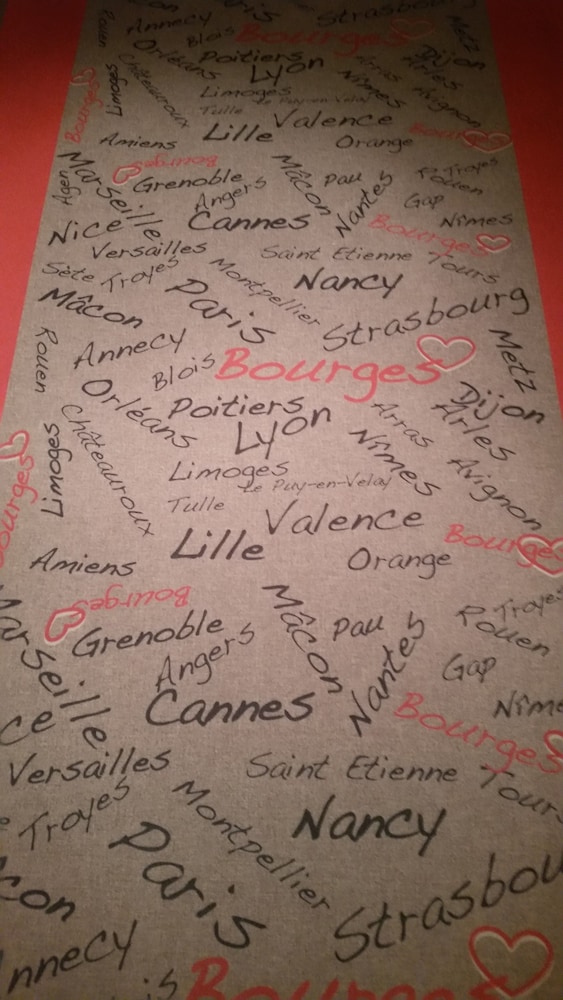 Paris
Strasbourg
Annecy
Rouen
Blois
Bourges
Metz
Orléans
Poitiers
Dijon
Arles
Lyon
Châteauroux
Limoges
Arras
Nîmes
Avignon
Limoges
Le Puy-en-Velay
Tulle
Bourges
Valence
Lille
Bourges
Amiens
Orange
Bourges
Marseille
Grenoble
Mâcon
Pau
Troyes
Rouen
Agen
Angers
Nantes
Gap
Nice
Cannes
Bourges
Nîmes
Versailles
Saint Etienne
Tours
Sète
Troyes
Montpellier
Nancy
Mâcon
Paris
Strasbourg
Annecy
Rouen
Blois
Bourges
Metz
Orléans
Poitiers
Dijon
Arles
Lyon
Châteauroux
Arras
Nîmes
Limoges
Limoges
Le Puy-en-Velay
Avignon
Bourges
Tulle
Valence
Lille
Bourges
Amiens
Orange
Bourges
Marseille
Grenoble
Mâcon
Pau
Troyes
Rouen
Angers
Nantes
Gap
Cannes
Bourges
Nîme
ce
Versailles
Saint Etienne
Tours
Troyes
Montpellier
Nancy
Paris
con
Strasbou
nnecy
is
Bourges